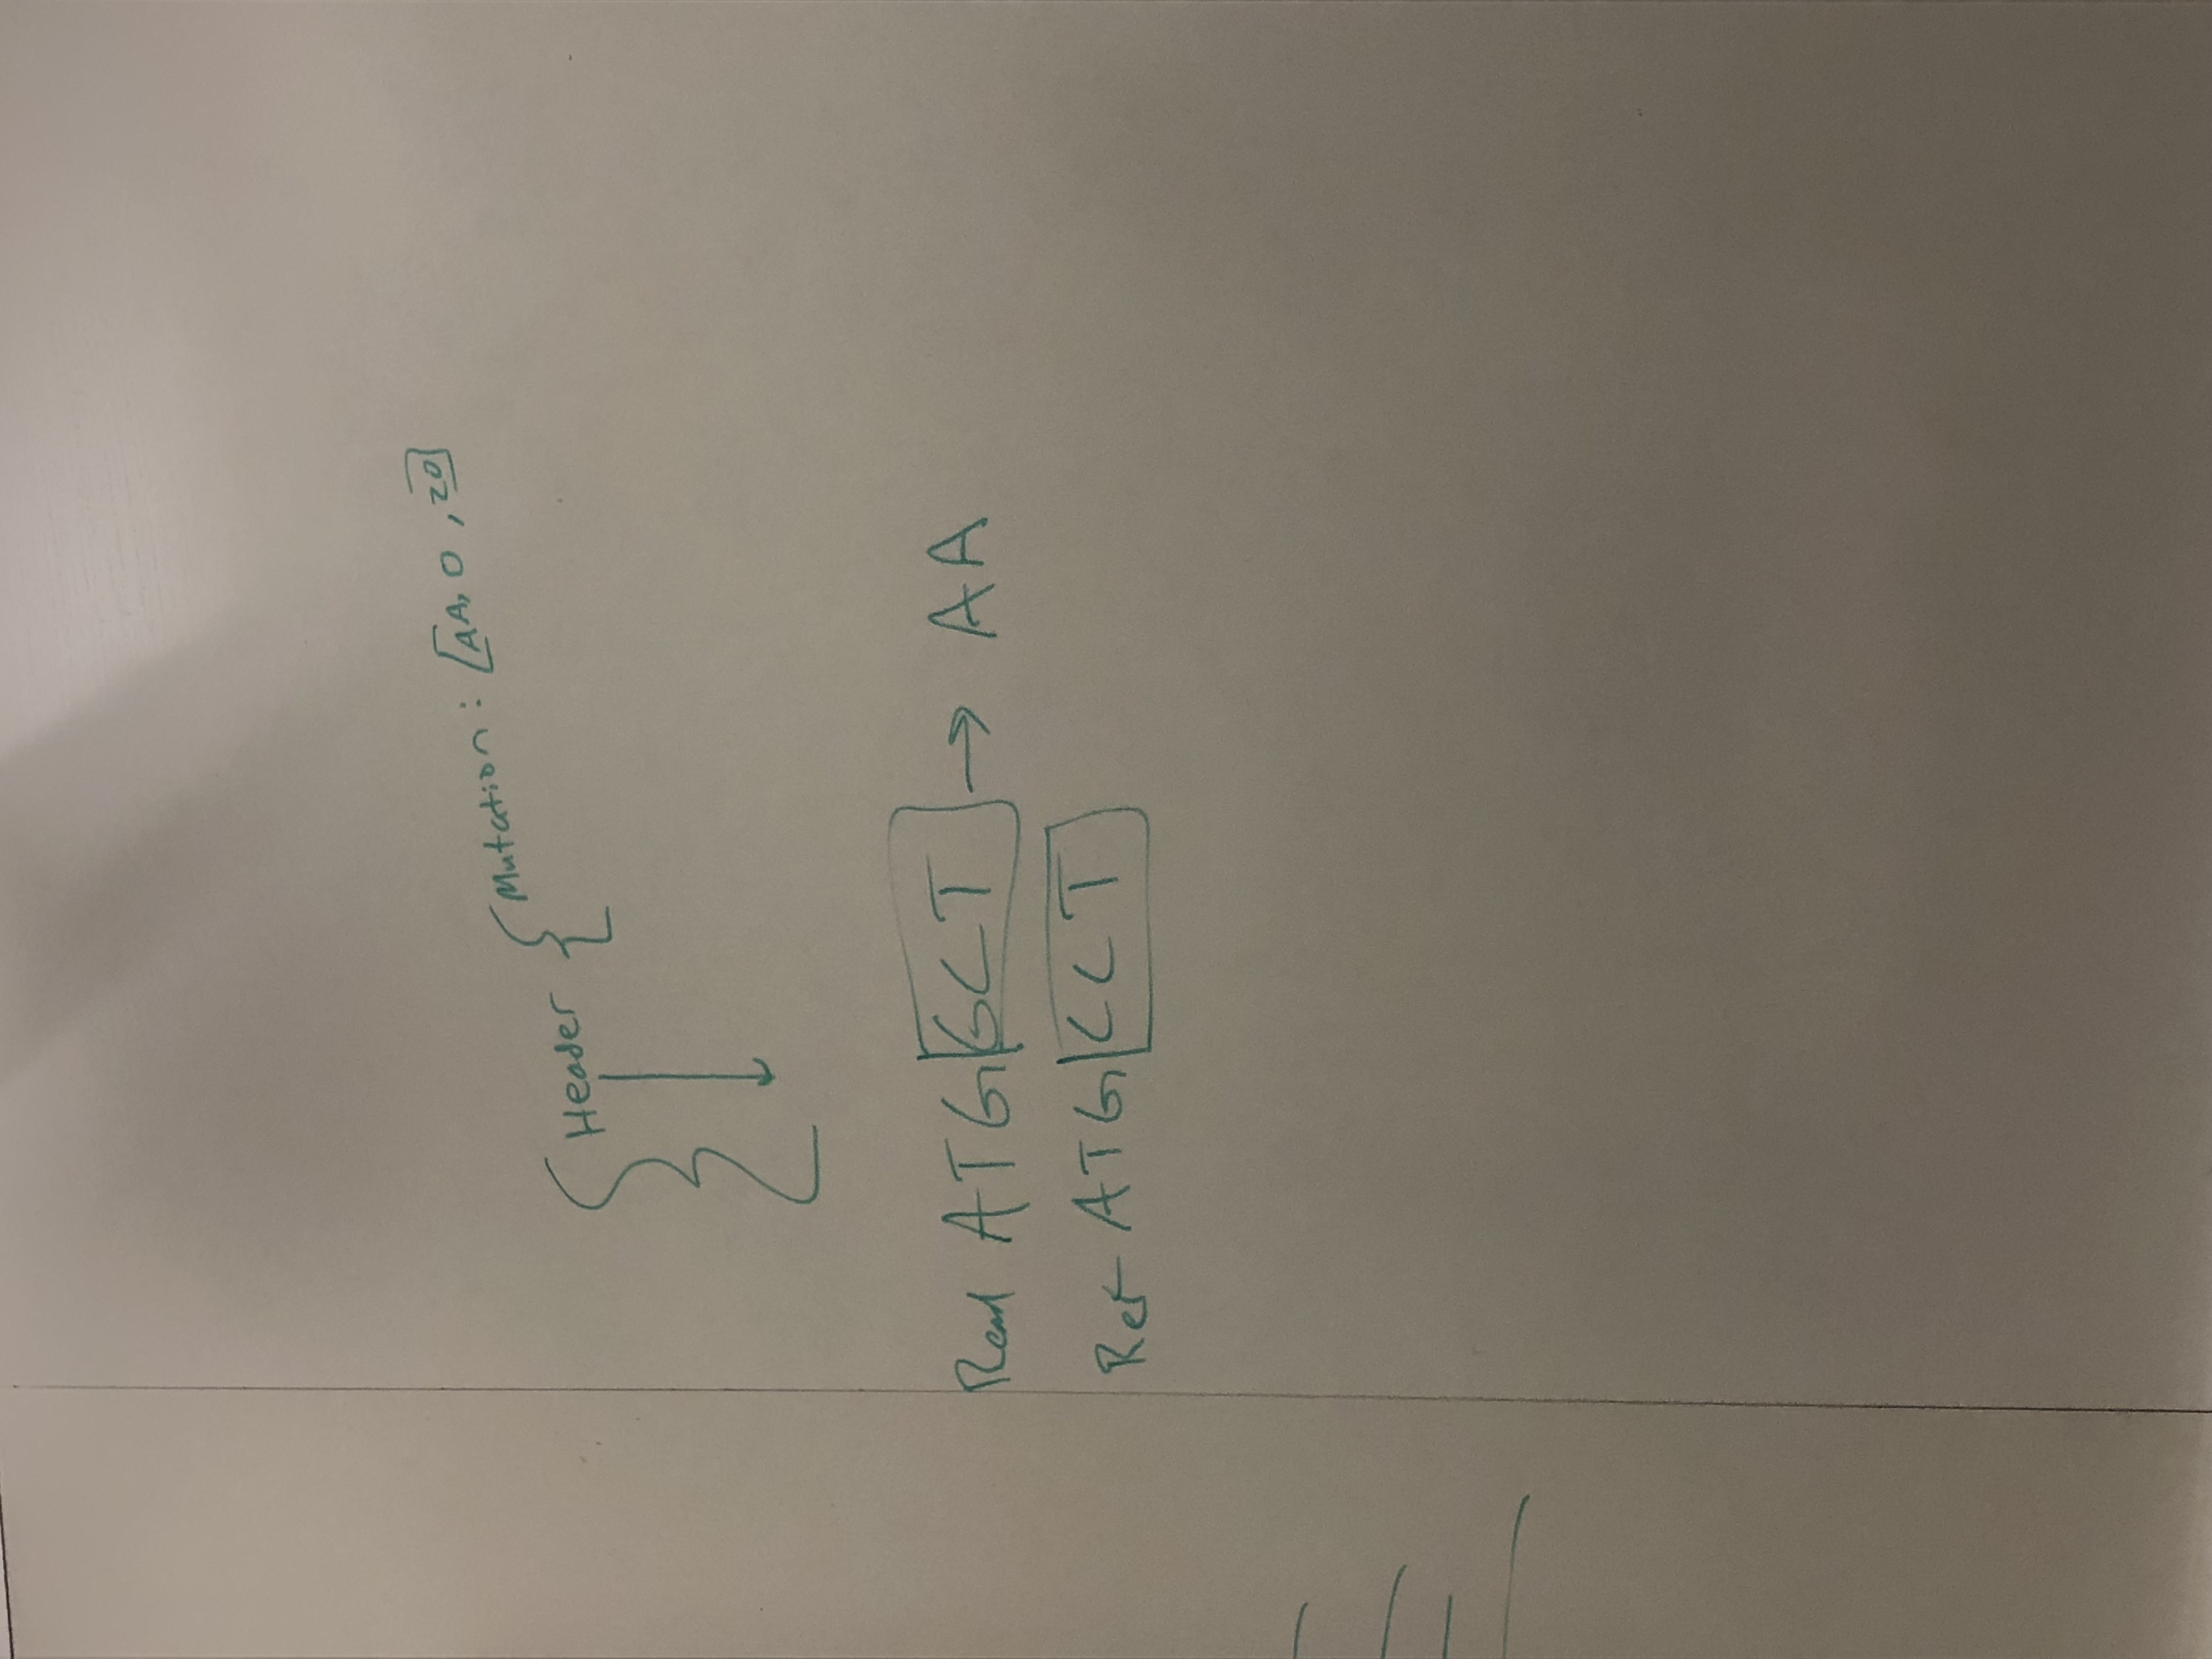 Header { Mutation : [AA, 0 , 20]
Read ATG GCT → AA
Ref ATG CCT